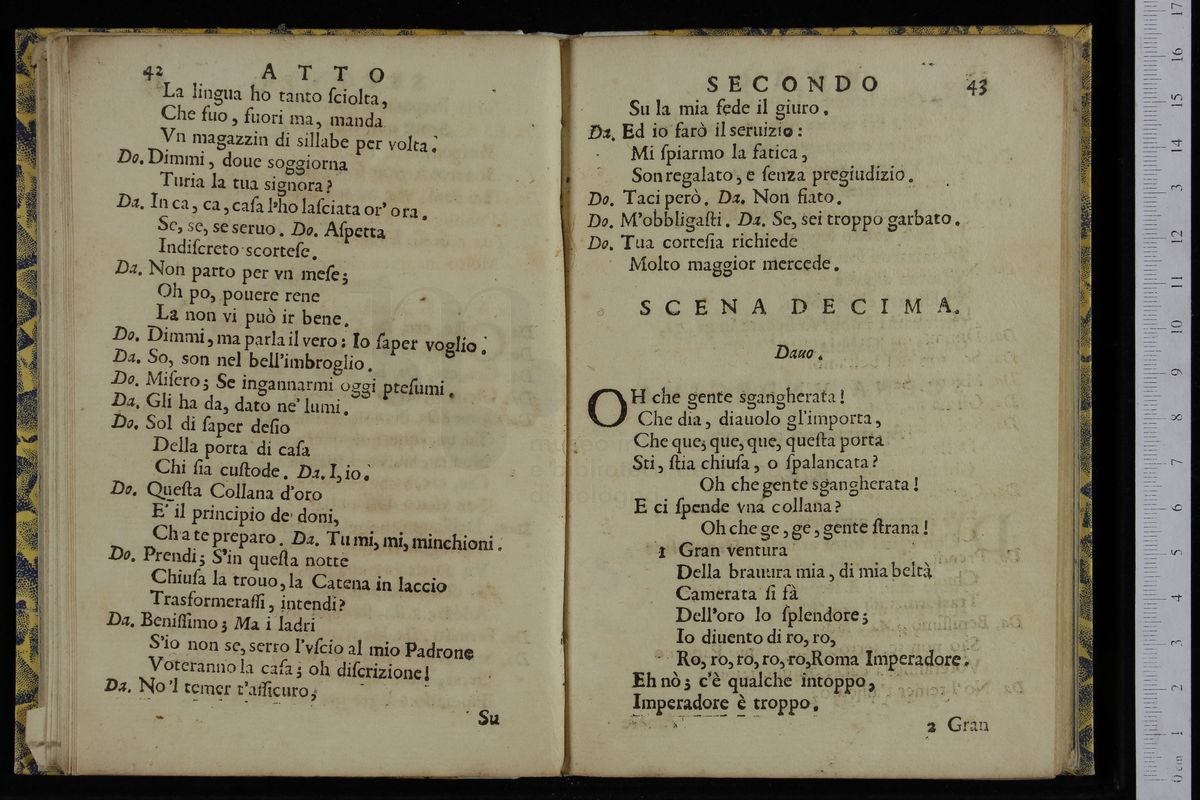 42 ATTO
La lingua ho tanto ſciolta,
Che fuo, fuori ma, manda
Vn magazzin di sillabe per volta.
Do. Dimmi, doue soggiorna
Turia la tua signora?
Da. In ca, ca, caſa l'ho laſciata or' ora.
Se, se, se seruo. Do. Aſpetta
Indiſcreto scorteſe.
Da. Non parto per vn meſe;
Oh po, pouere rene
La non vi può ir bene.
Do. Dimmi, ma parla il vero: Io ſaper voglio.
Da. So, son nel bell'imbroglio.
Do. Miſero; Se ingannarmi oggi pteſumi.
Da. Gli ha da, dato ne' lumi.
Do. Sol di ſaper deſio
Della porta di caſa
Chi ſia cuſtode. Da. I, io.
Do. Queſta Collana d'oro
E' il principio de' doni,
Ch'a te preparo. Da. Tu mi, mi, minchioni.
Do. Prendi; S'in queſta notte
Chiuſa la trouo, la Catena in laccio
Trasformeraſſi, intendi?
Da. Beniſſimo; Ma i ladri
S'io non se, serro l'vſcio al mio Padrone
Voteranno la caſa; oh diſcrizione!
Da. No 'l temer t'aſſicuro,
Su
SECONDO 43
Su la mia fede il giuro.
Da. Ed io farò il seruizio:
Mi ſpiarmo la fatica,
Son regalato, e ſenza pregiudizio.
Do. Taci però. Da. Non fiato.
Do. M'obbligaſti. Da. Se, sei troppo garbato.
Do. Tua corteſia richiede
Molto maggior mercede.
SCENA DECIMA.
Dauo.
OH che gente sgangherata!
Che dia, diauolo gl'importa,
Che que, que, que, queſta porta
Sti, ſtia chiuſa, o ſpalancata?
Oh che gente sgangherata!
E ci ſpende vna collana?
Oh che ge, ge, gente ſtrana!
1 Gran ventura
Della brauura mia, di mia beltà
Camerata ſi fà
Dell'oro lo ſplendore;
Io diuento di ro, ro,
Ro, ro, ro, ro, ro, Roma Imperadore.
Eh nò; c'è qualche intoppo,
Imperadore è troppo.
2 Gran